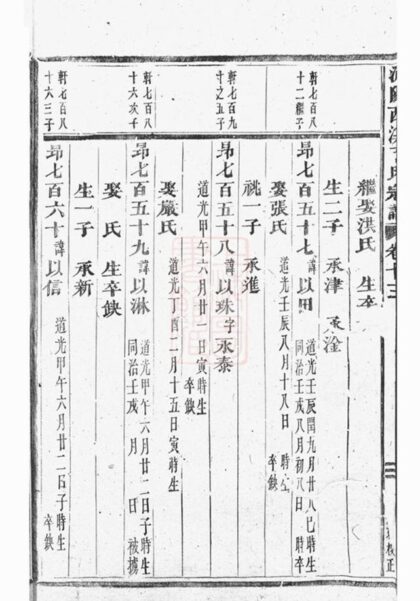 氏宗譜 卷十三
繼娶洪氏 生卒
生二子 承津 承淦
軒七百八
十二繼子
昂七百五十七諱以田
道光壬辰閏九月廿八巳時生
同治壬戌八月初八日 時卒
娶張氏 道光壬辰八月十八日 時生
卒缺
祧一子 承進
軒七百九
十之五子
昂七百五十八諱以珠字永泰
道光甲午六月廿一日寅時生
卒缺
娶嚴氏 道光丁酉二月十五日寅時生
軒七百八
十六次子
昂七百五十九諱以淋
道光甲午六月廿二日子時生
同治壬戌 月 日被擄
娶 氏 生卒缺
生一子 承新
軒七百八
十六三子
昂七百六十諱以信
道光甲午六月廿二日子時生
卒缺